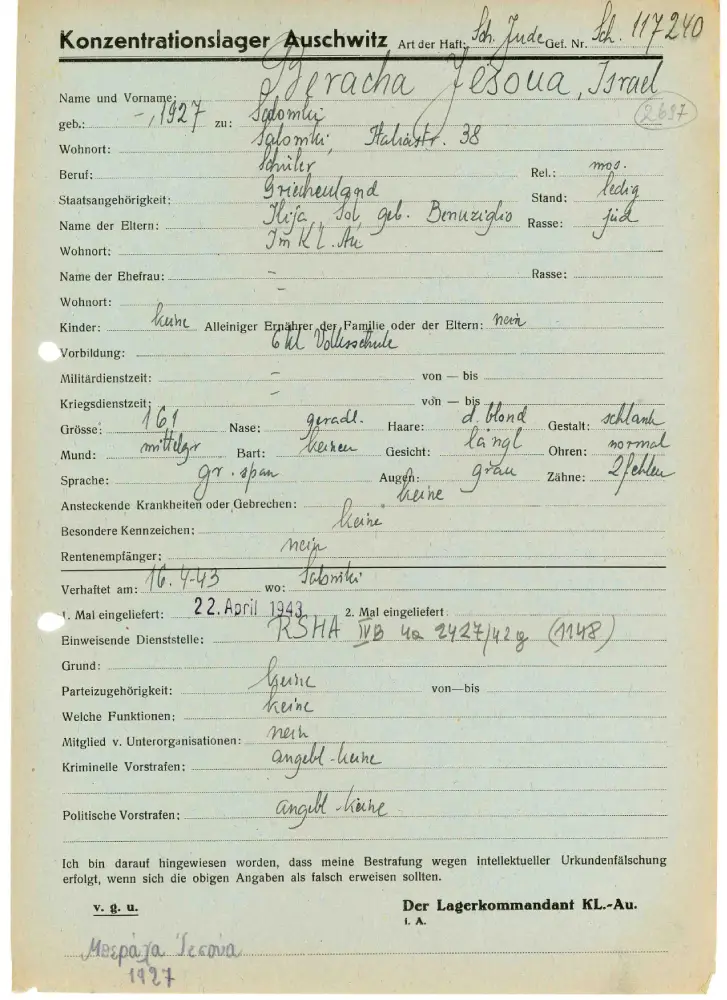 Konzentrationslager Auschwitz Art der Haft: Sch. Jude Gef. Nr. Sch. 117240
Name und Vorname: Beracha Jesoua, Israel
geb.: -, 1927 zu: Saloniki 2697
Wohnort: Saloniki, Italiastr. 38
Beruf: Schüler Rel.: mos.
Staatsangehörigkeit: Griechenland Stand: ledig
Name der Eltern: Ilija, Sol, geb. Benuziglio Rasse: jüd
Wohnort: Im K L. Au
Name der Ehefrau: - Rasse:
Wohnort: -
Kinder: keine Alleiniger Ernährer der Familie oder der Eltern: nein
Vorbildung: 6 Kl Volksschule
Militärdienstzeit: - von — bis
Kriegsdienstzeit: - von — bis
Grösse: 161 Nase: geradl. Haare: d. blond Gestalt: schlank
Mund: mittelgr Bart: keinen Gesicht: längl Ohren: normal
Sprache: gr. span Augen: grau Zähne: 2 fehlen
Ansteckende Krankheiten oder Gebrechen: keine
Besondere Kennzeichen: keine
Rentenempfänger: nein
Verhaftet am: 16. 4-43 wo: Saloniki
1. Mal eingeliefert: 22. April 1943 2. Mal eingeliefert:
Einweisende Dienststelle: RSHA IVB 4a 2427/42g (1148)
Grund:
Parteizugehörigkeit: keine von—bis
Welche Funktionen: keine
Mitglied v. Unterorganisationen: nein
Kriminelle Vorstrafen: angebl - keine
Politische Vorstrafen: angebl - keine
Ich bin darauf hingewiesen worden, dass meine Bestrafung wegen intellektueller Urkundenfälschung
erfolgt, wenn sich die obigen Angaben als falsch erweisen sollten.
v. g. u. Der Lagerkommandant KL.-Au.
i. A.
Μπεράχα Ιεσούα
1927